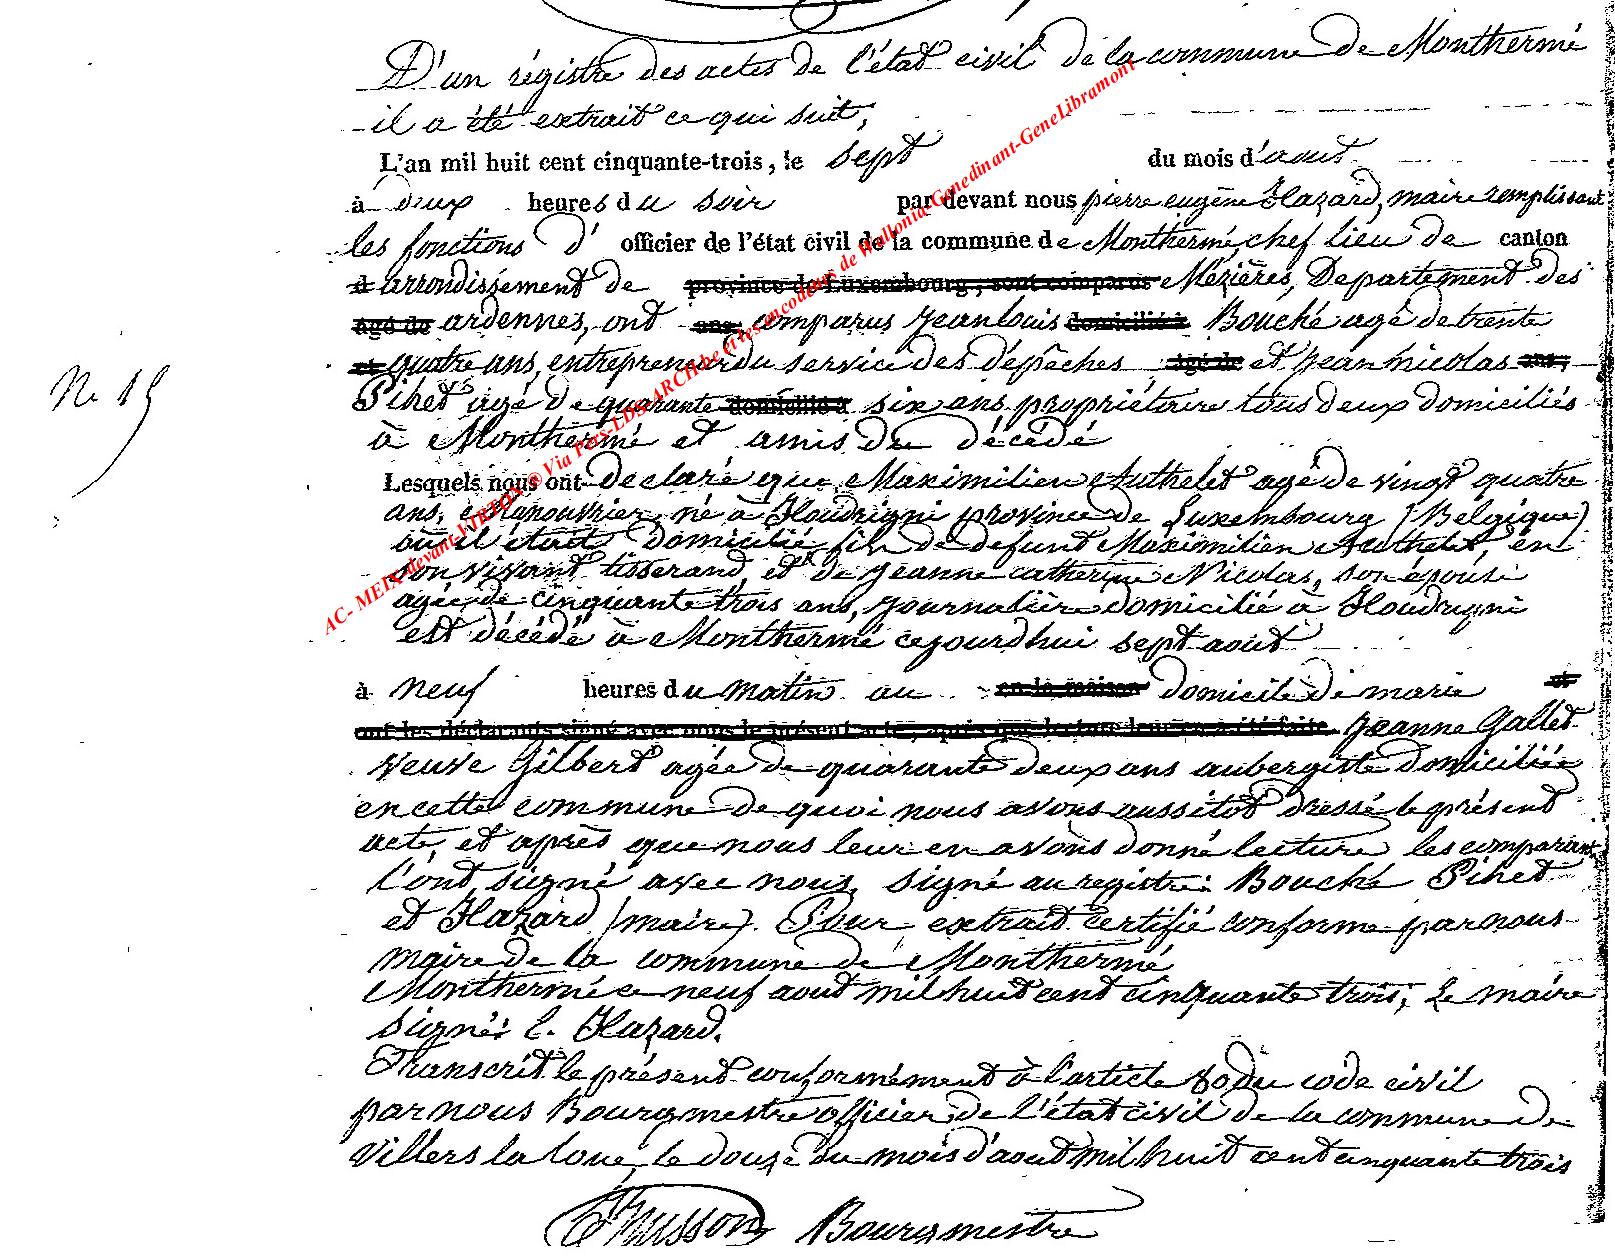 D'un régistre des actes de l'état civil de la commune de Monthermé
il a été extrait ce qui suit,
L'an mil huit cent cinquante-trois, le sept du mois d'aout
à deux heures du soir par devant nous pierre eugène Hazard, maire remplissant
les fonctions d' officier de l'état civil de la commune de Monthermé, chef lieu de canton
d arrondissement de province de Luxembourg, sont comparus Mézières, Departement des
âgé de ardennes, ont ans, comparus Jean louis domicilié à Bouché agé de trente
et quatre ans, entrepreneur du service des dépêches âgé de et Jean nicolas ans,
Pihet agé de quarante domicilié à six ans propriétaire tous deux domiciliés
à Monthermé et amis du décédé
Lesquels nous ont declaré que Maximilien Authelet agé de vingt quatre
ans, Manouvrier, né à Houdrigni province de Luxembourg (Belgique)
où il était domicilié fils de defunt Maximilien Authelet, en
son vivant tisserand, et de Jeanne catherine Nicolas, son épouse
agée de cinquante trois ans, journalière domicilié à Houdrigni
est décédé à Monthermé cejourdhui sept aout
à neuf heures du matin au en la maison domicile de marie et
ont les déclarants signé avec nous le présent acte, après que lecture leur en a été faite. Jeanne Gallet
veuve Gilbert agée de quarante deux ans aubergiste domiciliée
en cette commune de quoi nous avons aussitot dressé le présent
acte, et après que nous leur en avons donné lecture les comparants
l'ont signé avec nous, signé au registre: Bouché Pihet
et Hazard (maire). Pour extrait certifié conforme par nous
maire de la commune de Monthermé
Monthermé ce neuf aout mil huit cent cinquante trois, Le maire
signé: E. Hazard.
Transcrit le présent conformément à l'article 80 du code civil
par nous Bourgmestre officier de l'état civil de la commune de
Villers la loue, le douze du mois d'aout mil huit cent cinquante trois
Husson Bourgmestre
No 15
AC- MEIX-devant-VIRTON © Via Pers-LDS-ARCH.be et les encodeurs de Wallonia-Genedinant-GeneLibramont